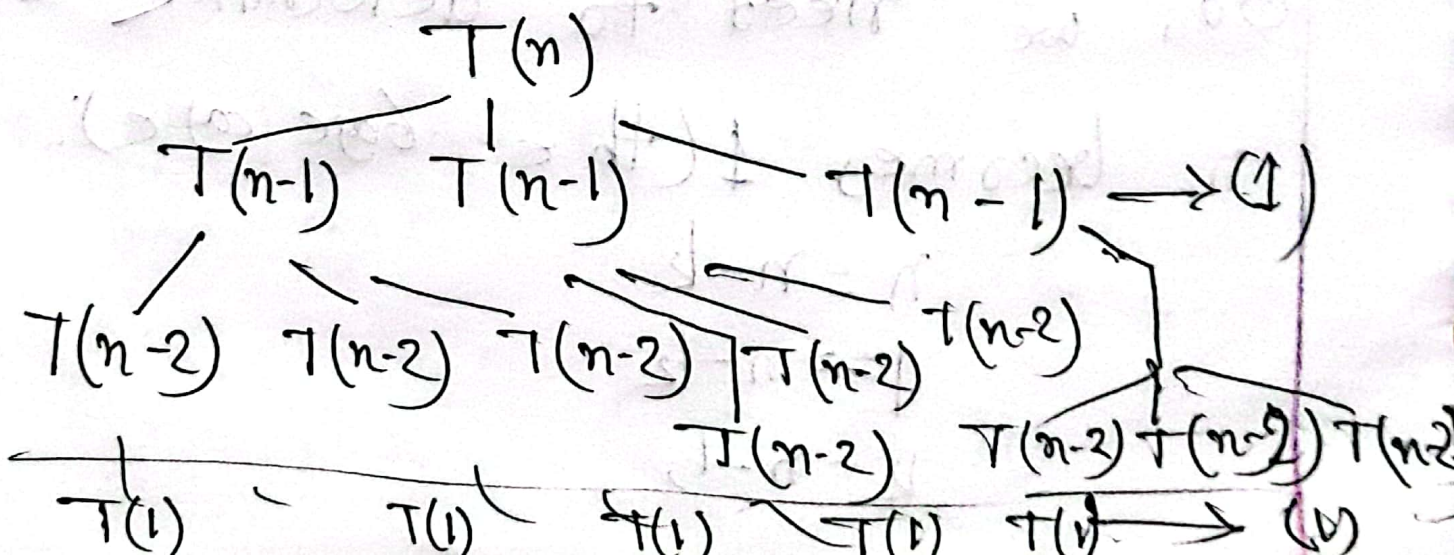 T(n)
T(n-1) T(n-1) T(n-1) → (1)
T(n-2) T(n-2) T(n-2) T(n-2) T(n-2)
T(n-2) T(n-2) T(n-2) T(n-2
T(1) T(1) T(1) T(1) T(1) →